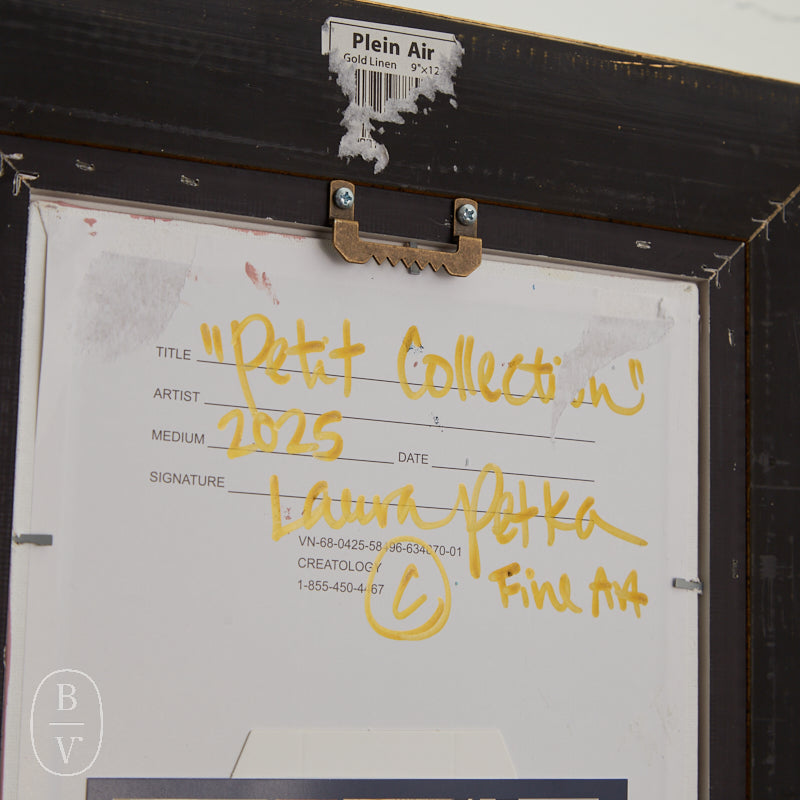 Plein Air
Gold Linen 9"×12
TITLE "Petit Collection"
ARTIST
MEDIUM 2025 DATE
SIGNATURE Laura Petka
VN-68-0425-58 96-634 70-01
CREATOLOGY
1-855-450-4 67
C Fine Art
B
V